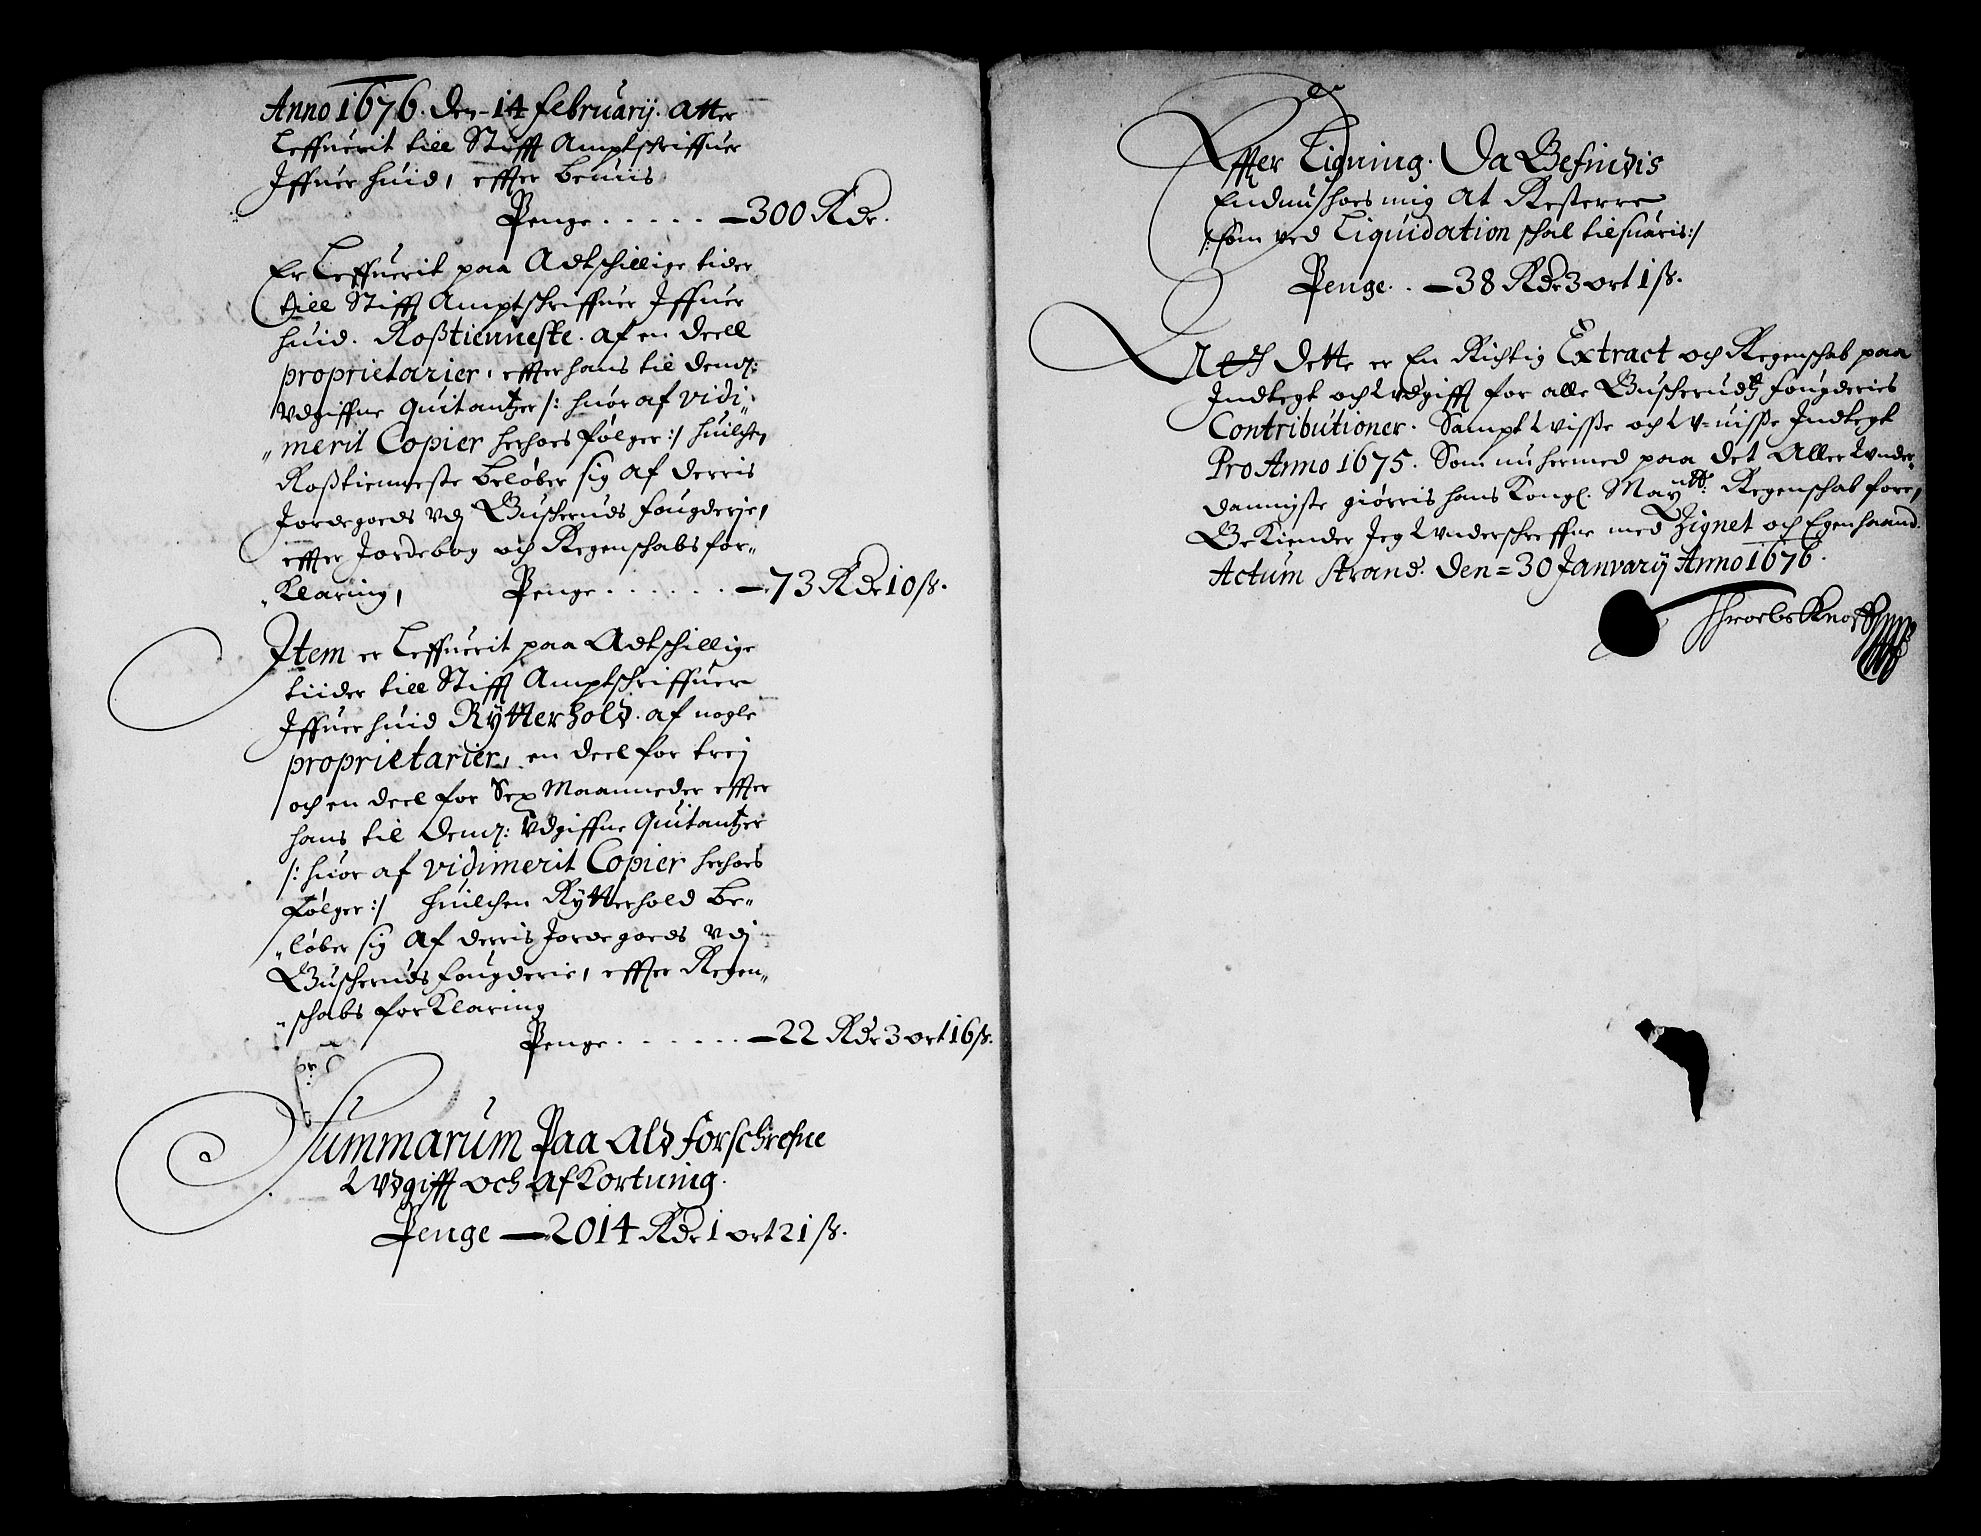 Anno 1676. den 14 februarij. atter
Leffuerit till Stifft Amptschriffuer
Iffuer huid, effter beuiis
Penge . . . . . — 300 Rdr.
Er Leffuerit paa Adtschillige tider
till Stifft Amptschriffuer Iffuer
huid. Roßtienneste. af en deell
proprietarier, effter hans til dennem:
Vdgiffne Quitantzer /: huor af vidi„
„merit Copier herhoes følger :/ huilchen
Roßtienneste beløber sig af derris
Jordegoeds vdj Buscheruds fougderje,
effter Jordebog och Regenschabs for„
„Klaring, Penge . . . . . . — 73 Rdr 10 ß.
Item er Leffuerit paa Adtschillige
tiider till Stifft Amptschriffuer
Iffuer huid Rÿtterhold. af nogle
proprietarier, en deel for trej
och en deel for Sex Maanneder effter
hans til dennem: Vdgiffne Quitantzer
/: huor af vidimerit Copier herhoes
følger :/ huilchen Rÿtterhold be„
„løber sig af derris Jordegoeds vdj
Buscheruds fougderie, effter Regen„
„schabs forKlaring
Penge . . . . . . — 22 Rdr 3 ort 16 ß.
Summarum Paa Ald forschrefne
Vdgifft och afKortning.
Penge — 2014 Rdr 1 ort 21 ß.
Effter Ligning. Da Befindis
Endnu hoes mig at Resterre
/: som ved Liquidation schal tilsuaris :/
Penge . . — 38 Rdr 3 ort 1 ß.
At dette er En Richtig Extract och Regenschab paa
Indtegt och Vdgifft for alle Buscheruds fougderies
Contributioner. Sampt Visße och V-uisße Indtegt
Pro Anno 1675. Som nu hermed paa det Aller Vnder„
danigste giørris hans Kongl. Maytt: Regenschab fore,
BeKiender Jeg Vnderschreffne med Zignet och Egenhaand.
Actum Strand. den = 30 Janvarij Anno 1676.